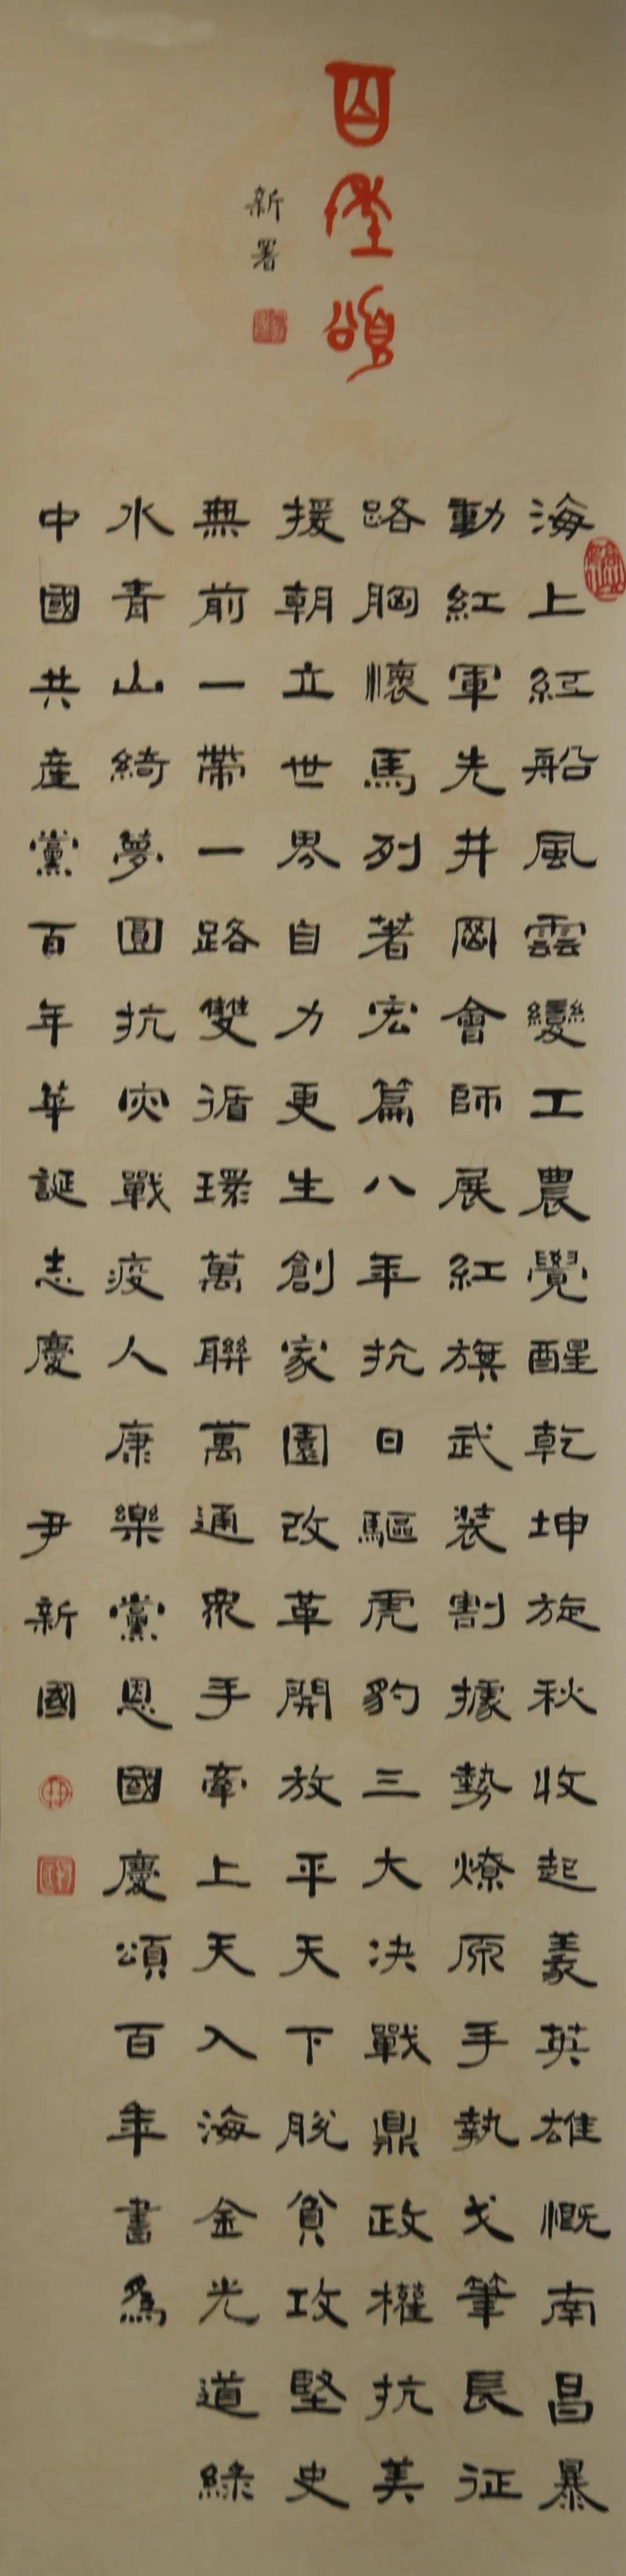 百年頌
新署
海上紅船風雲變工農覺醒乾坤旋秋收起義英雄慨南昌暴
動紅軍先井岡會師展紅旗武装割據勢燎原手執戈筆長征
路胸懷馬列著宏篇八年抗日驅虎豹三大决戰鼎政權抗美
援朝立世界自力更生創家園改革開放平天下脫貧攻堅史
無前一帶一路雙循環萬聯萬通眾手牽上天入海金光道綠
水青山綺夢圓抗灾戰疫人康樂黨恩國慶頌百年書爲
中國共産黨百年華誕志慶 尹新國